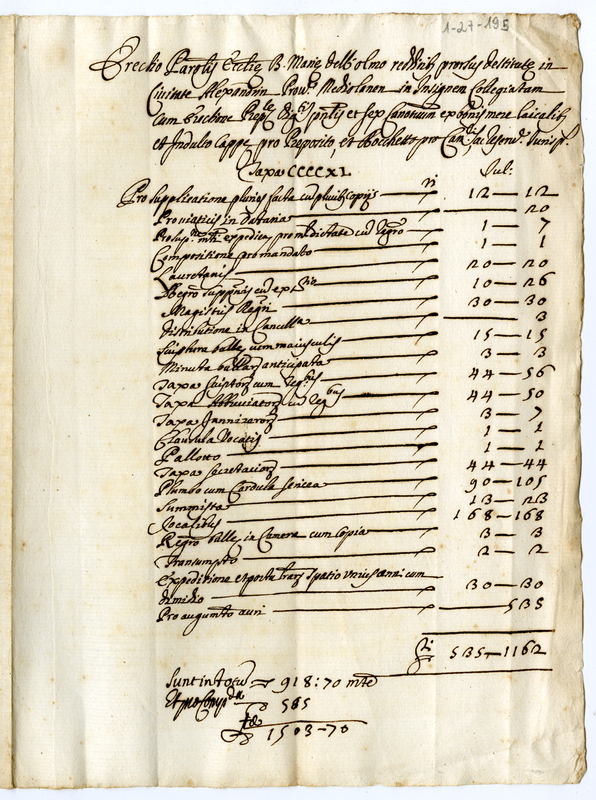 1-27-195
Erectio Paroلis Ecclię B. Marię dell'olmo reddib; prorsus destitutę in
Civitate Alexandrin Prov.ę Mediolanen in Insignem Collegiatam
Cum Erectione et sex Canonicatuum ex bonis mere laicalib;
et Indulto Cappę pro Preposito, et Rocchetto pro
Taxa CCCCXL Jul:
Pro supplicatione pluries facta cu pluribs copijs 12 — 12
Pro viaticis in Dataria — 20
expedien pro medietate cu Regro 1 — 7
Compositione pro mandato 1 — 1
Lauretanis 20 — 20
Regro supp.nis cu 10 — 26
Magistris Regri 30 — 30
Distributione in Cancellа — 3
Scriptura bullę cum maiusculis 15 — 15
Minuta bullarę anticipata 3 — 3
Taxa scriptorę cum Reg.bus 44 — 56
Taxa Abbreviatorę cu Reg.bus 44 — 50
Taxa Jannizerorę 3 — 7
Clausula Vocatis 1 — 1
Pallotto 1 — 1
Taxa secretariorę 44 — 44
Plumbo cum Cordula sericea 90 — 105
Summista 13 — 23
Jocalibus 168 — 168
Regro bullę in Camera cum Copia 3 — 3
Transumpto 2 — 2
Expeditione et porta spatio unius anni cum
dimidio 30 — 30
Pro augmto auri — 535
535 — 1162
Sunt in totu 918:70 mtę
Et pro Comp.da 585
1503-70